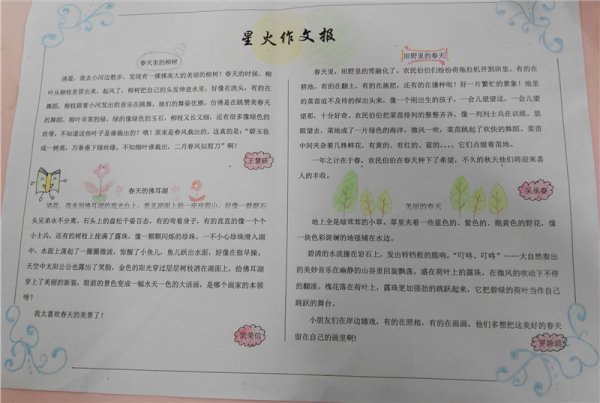 星火作文报
春天里的柳树
清晨，我去小河边散步，发现有一棵棵高大的美丽的柳树！春天的时候，柳
叶从柳枝里冒出来，起风了，柳树把自己的头发抻进水里，绿色的，有的在
舞蹈，柳枝跟着小河发出的音乐在跳舞，她们的舞姿优雅，仿佛是在跳赞美春天
的舞蹈，柳叶非常的绿，绿的像绿色的玉石，柳枝又长又细，还有很多绿色的
丝带，不知道这些叶子是谁裁出的？噢！原来是春风裁出的。这真的是：“碧玉妆
成一树高，万条垂下绿丝绦。不知细叶谁裁出，二月春风似剪刀”啊！
王慧妍
春天的佛耳湖
清晨，我来到佛耳湖的观光台上，看见湖面上一座座假山，好像一群群石
头兄弟永不分离，石头上的盘松千姿百态，有的弯着身子，有的直直的像一个个
小士兵，还有的树枝上挂满了露珠，像一颗颗闪烁的珍珠，一不小心珍珠滑入湖
中，水面上荡起了一圈圈微波，惊醒了小鱼儿，鱼儿跃出水面，好像在做早操。
天空中太阳公公也露出了笑脸，金色的阳光穿过层层树枝洒在湖面上，给佛耳湖
穿上了美丽的新装，眼前的景色变成一幅水天一色的大活画，是哪个画家的本领
呀？
我太喜欢春天的美景了！
黄荣信
田野里的春天
春天里，田野里的雪融化了，农民伯伯们纷纷将拖拉机开到田里，有的在
耕地，有的在翻土，有的在施肥，还有的在播种呢！好一片繁忙的景象！地里
的菜苗迫不及待的探出头来，像一个刚出生的孩子，一会儿望望这，一会儿望望
那，十分好奇，农民伯伯把菜苗排列的整整齐齐，像一列列士兵在训练，放
眼望去，菜地成了一片绿色的海洋，微风一吹，菜苗跳起了欢快的舞蹈，菜苗
中间夹杂着几棵鲜花，有黄的、有红的、蓝的……，它们点缀着苗地。
一年之计在于春，农民伯伯在春天种下了希望，不久的秋天他们将迎来喜
人的丰收。
吴承睿
美丽的春天
地上全是绿茸茸的小草，草里夹着一些蓝色的、紫色的、鹅黄色的野花，像
一块色彩斑斓的地毯铺在水边。
碧清的水流撞在岩石上，发出铃铛般的脆响，“叮咚、叮咚”……大自然奏出
的美妙音乐在幽静的山谷里回旋飘荡，盛在荷叶上的露珠，在微风的吹动下不停
的翻滚，槐花落在荷叶上，露珠更加强劲的跳跃起来，它把碧绿的荷叶当作自己
跳跃的舞台。
小朋友们在岸边嬉戏，有的在照相，有的在画画，他们多想把这美好的春天
留在自己的画里啊！